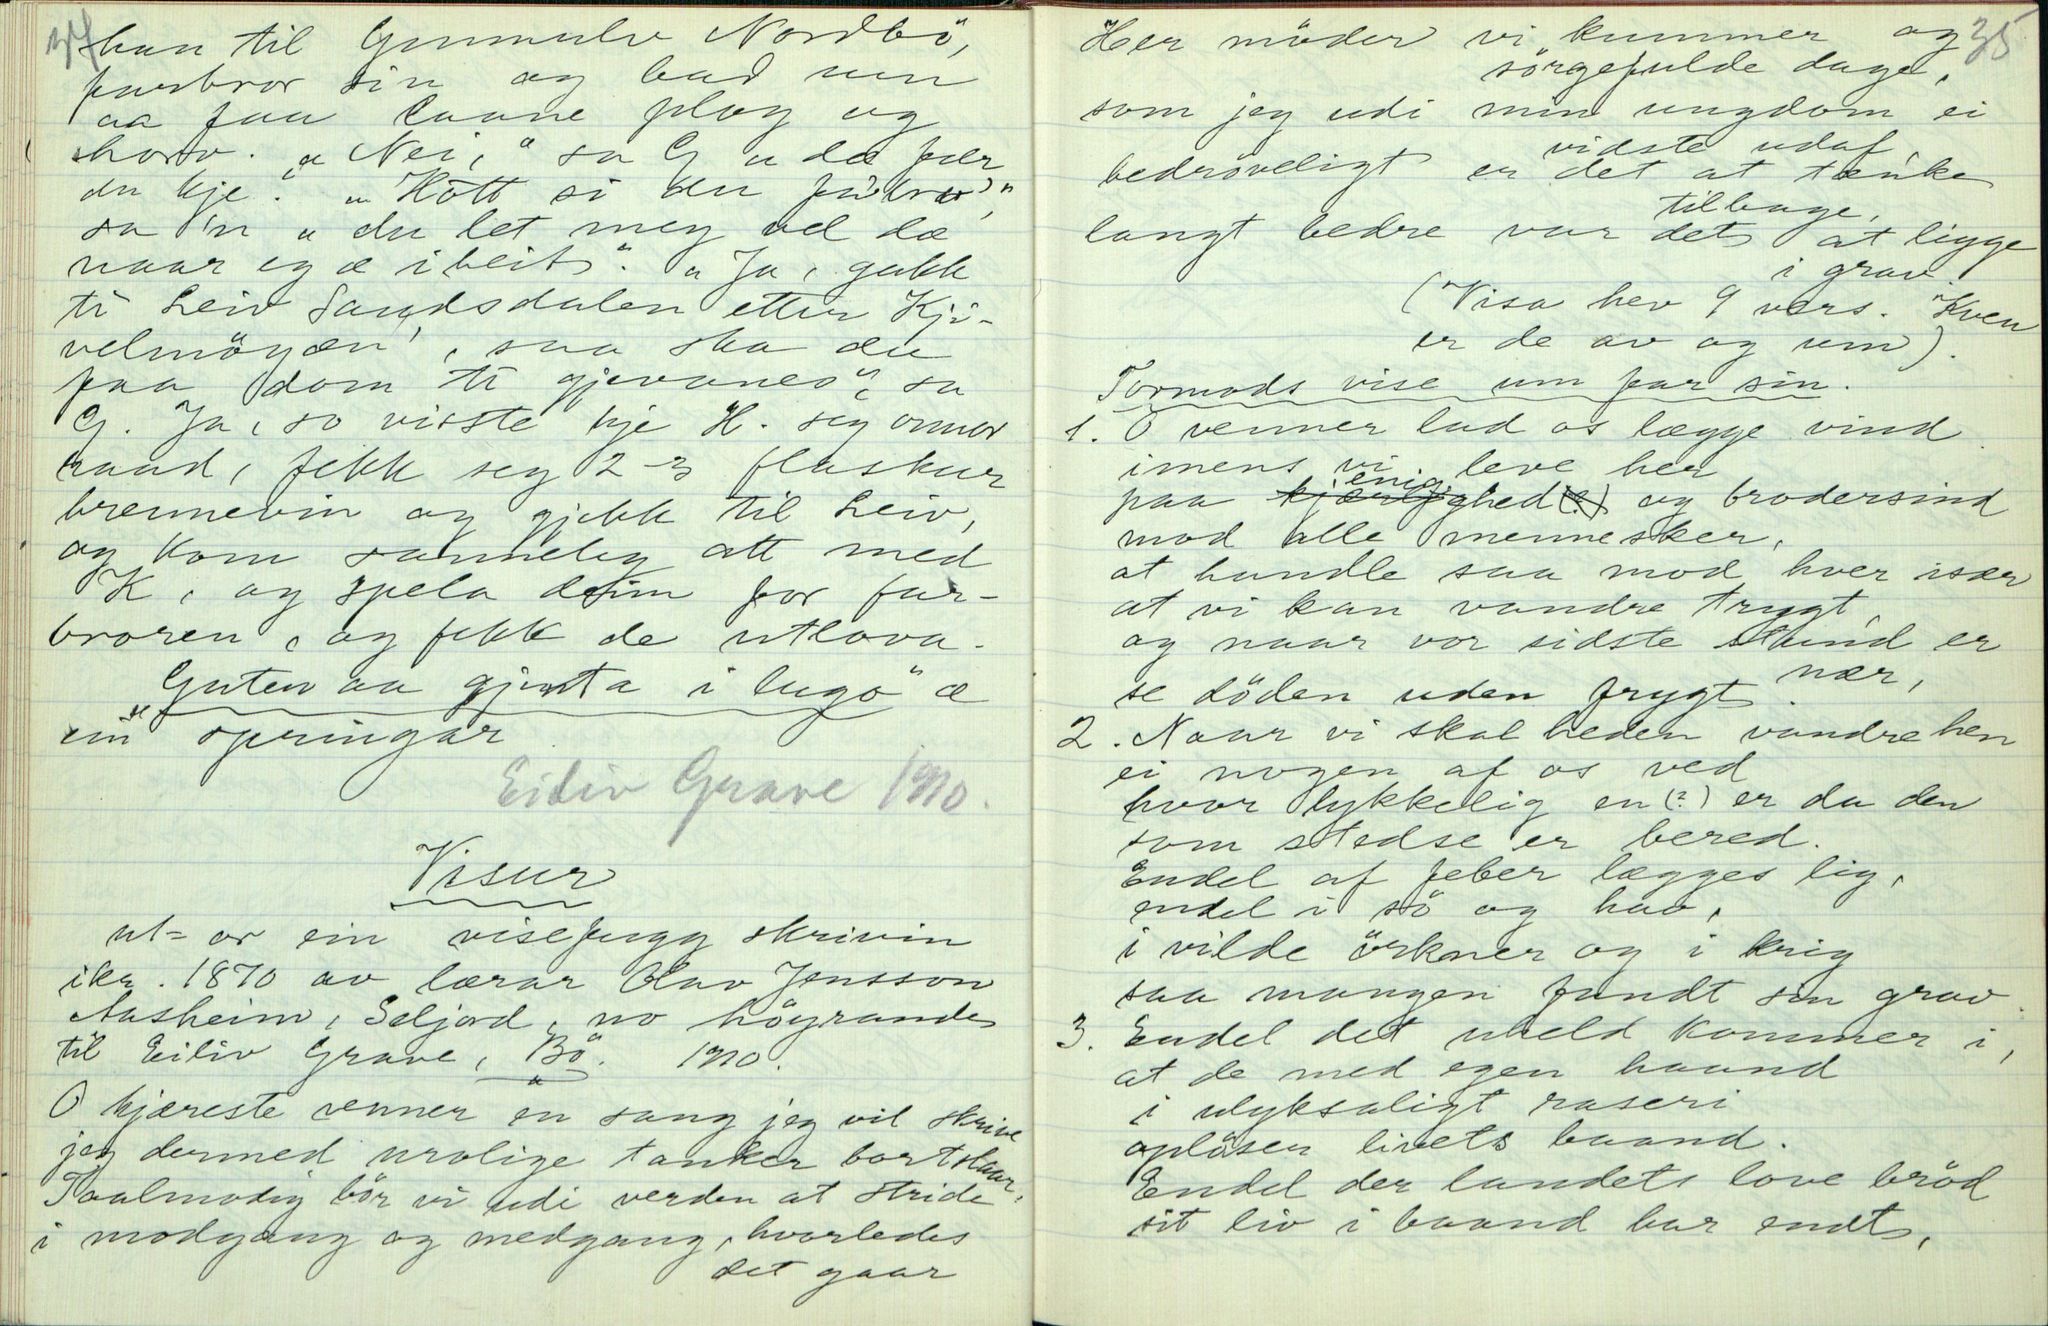 34
han til Gunnulv Nordbö,
farbror sin og bad um
aa faa laane plog og
horv. "Nei," sa G "dæ fær
du kje." "Hött si du farbror,"
sa 'n "du let meg vel dæ
naar eg æ i beit". "Ja, gakk
ti Leiv Sandsdalen etter Kji-
velmöyæn', saa ska du
faa dom ti gjevanes", sa
G. Ja, so visste kje H. seg onnor
raad, fekk seg 2-3 flaskur
brennevin og gjekk til Leiv,
og kom sanneleg att med
K, og spela deim for far-
broren, og fekk de utlova.
Guten aa gjenta i lugö" æ
ein springar
Eiliv Grave 1910.
Visur
ut- or ein visefugg skrivin
ikr. 1870 av lærar Olav Jensson
Aasheim, Seljord, no högrande
til Eiliv Grave, Bö. 1910.
O kjæreste venner en sang jeg vil skrive
jeg dermed urolige tanker bortslaar,
Taalmodig bör vi udi verden at stride
i modgang og medgang, hvorledes
det gaar
35
Her möder vi kummer og
sörgefulde dage,
som jeg udi min ungdom ei
vidste udaf,
bedröveligt er det at tænke
tilbage,
langt bedre var det at ligge
i grav.
(Visa hev 9 vers. Kven
er de av og um).
Tormods vise um far sin.
1. O venner lad os lægge vind
imens vi leve her
enig
paa kjærlighed(?) og brodersind
mod alle mennesker,
at handle saa mod hver især
at vi kan vandre trygt,
og naar vor sidste stund er
nær,
se döden uden frygt
2. Naar vi skal heden vandre hen
ei nogen af os ved
hvor lykkelig en(?) er da den
som stedse er bered.
Endel af feber lægges lig,
endel i sö og hav,
i vilde örkner og i krig
saa mangen fandt sin grav.
3. Endel det uheld kommer i,
at de med egen haand
i ulyksaligt raseri
oplösen livets baand.
Endel der landets love bröd
sit liv i baand har endt,